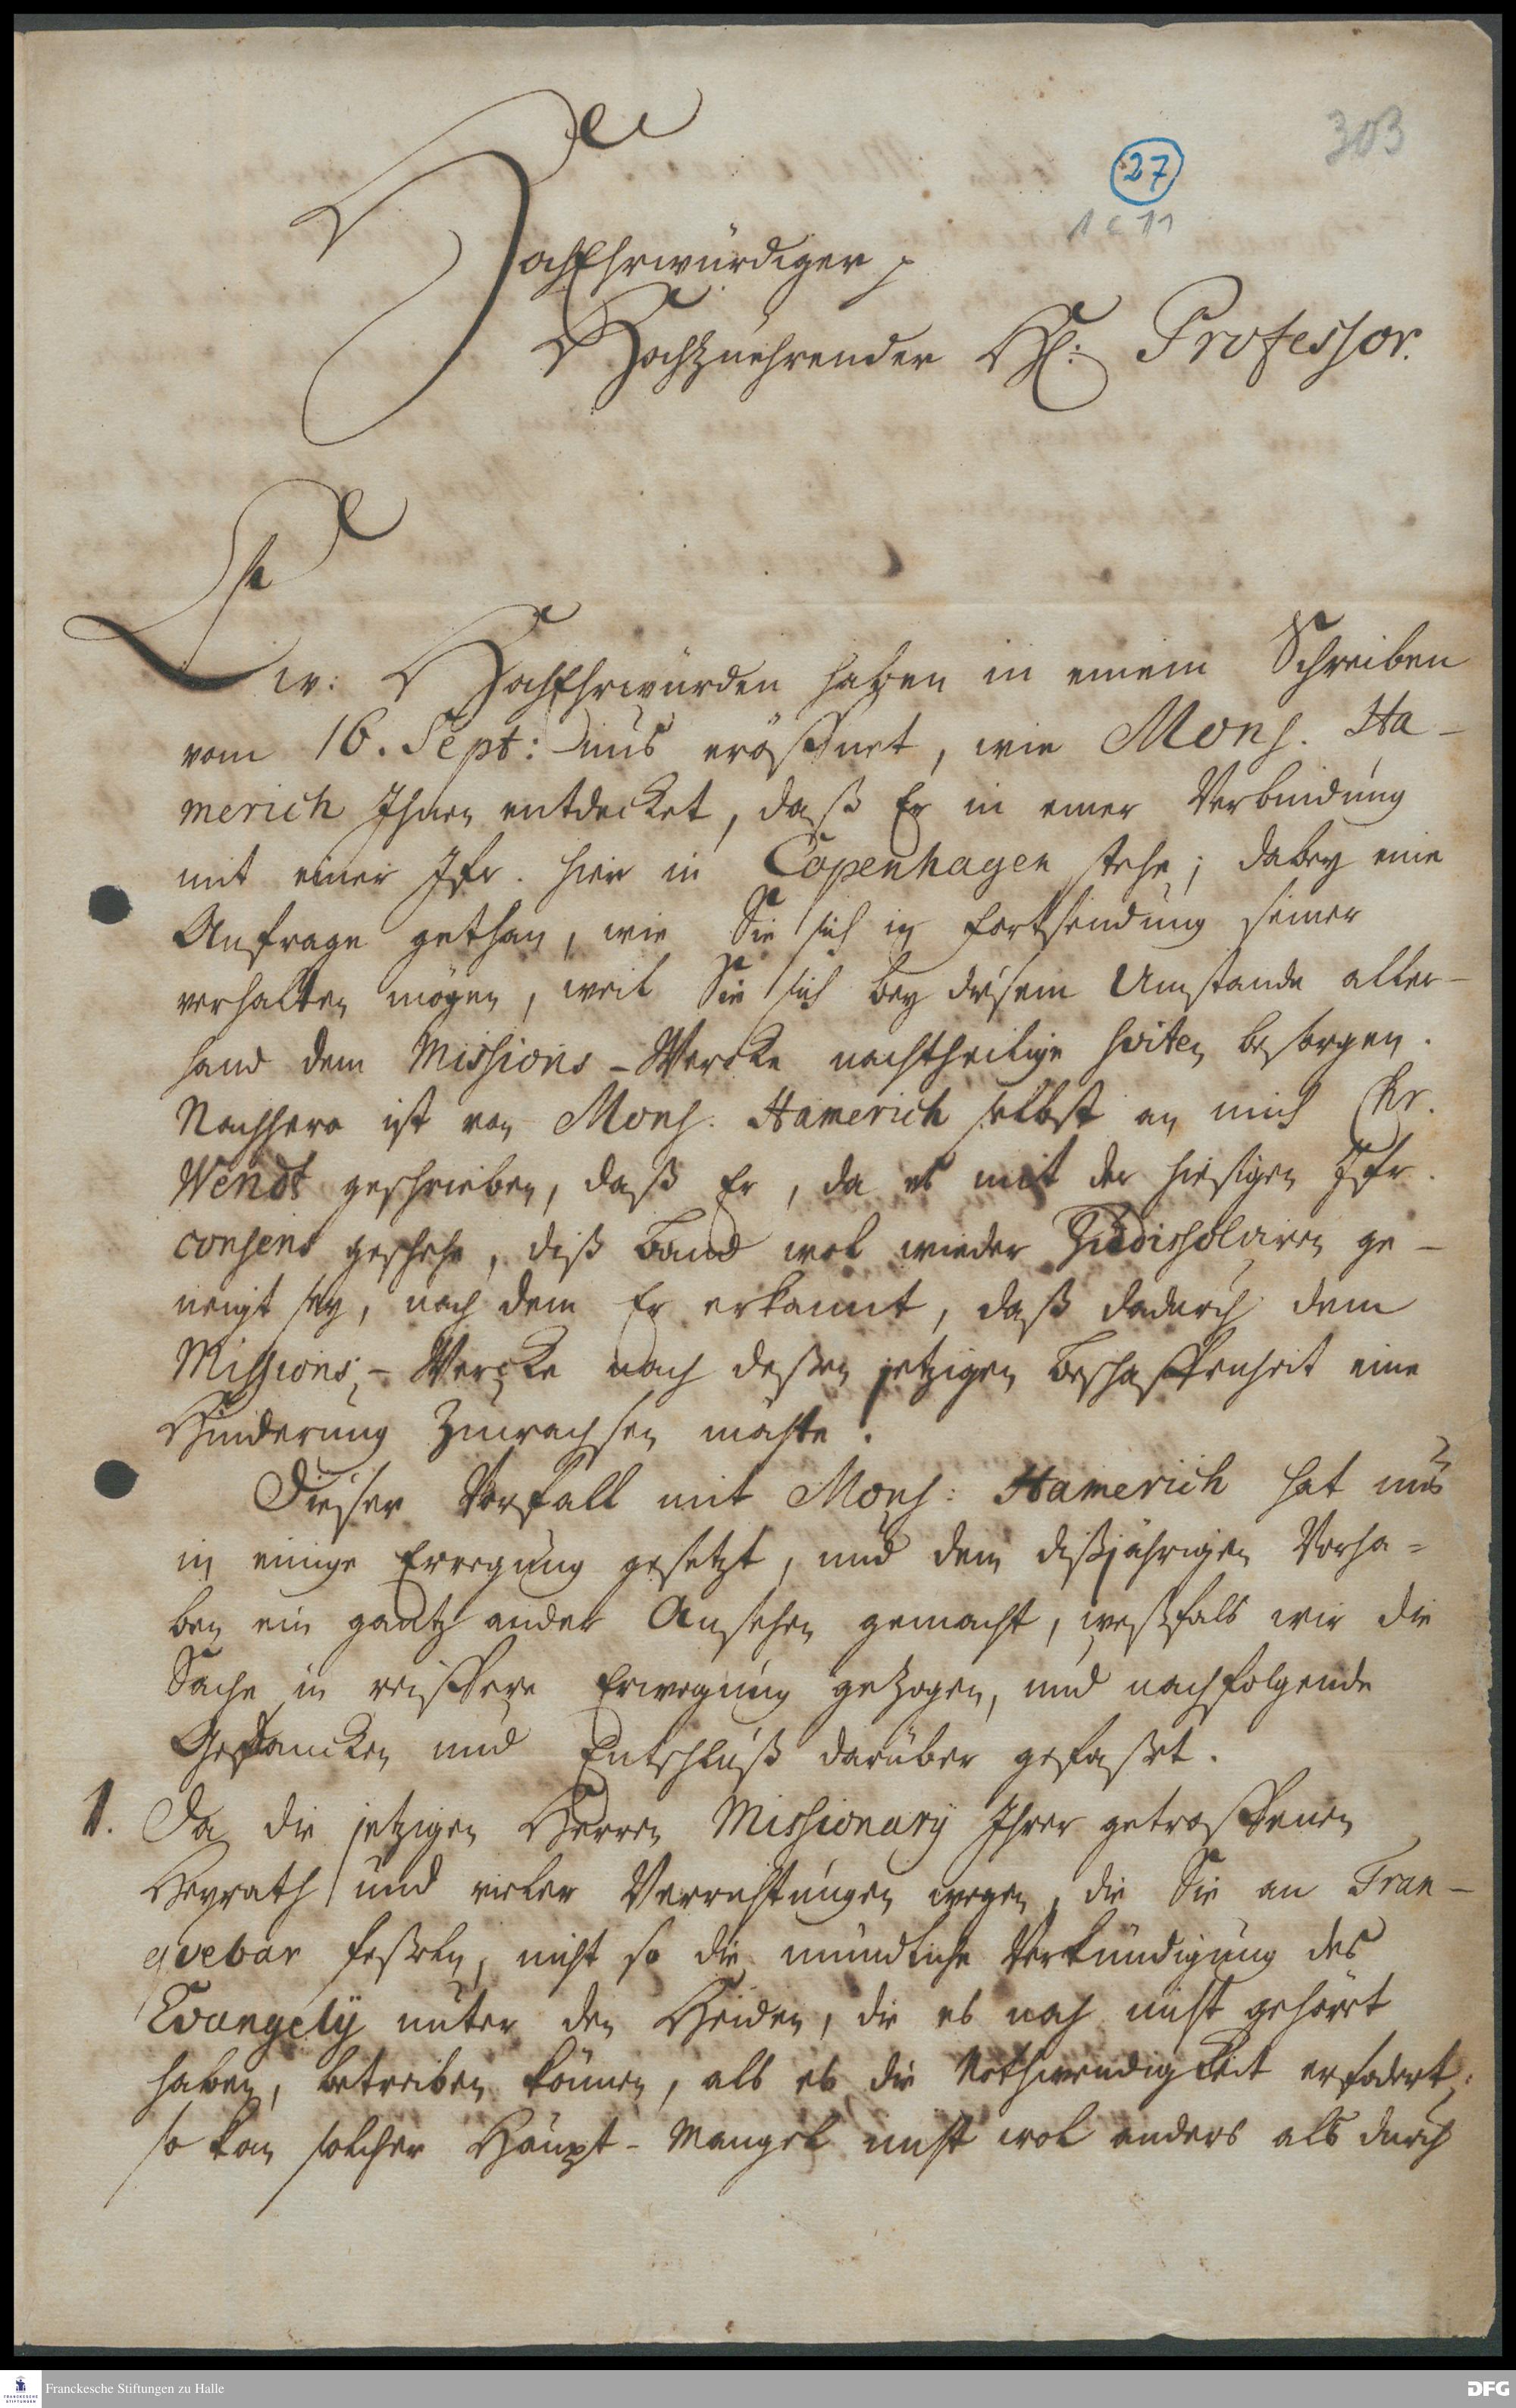 303
27
1 C 11
HochEhrwürdiger p
Hochzuehrender HE: Professor.
Ew: HochEhrwürden haben in einem Schreiben
vom 16. Sept: uns eröffnet, wie Mons. Ha-
merich Ihnen entdecket, daß Er in einer Verbindung
mit einer Jfr. hier in Copenhagen stehe; dabey eine
Anfrage gethan, wie Sie sich in Fortsendung seiner
verhalten mögen, weil Sie sich bey diesem Umstande aller-
hand dem Missions-Wercke nachtheilige besorgen.
Nachhero ist von Mons: Hamerich selbst an mich Chr.
Wendt geschrieben, daß Er, da es mit der hiesigen Jfr.
consens geschehe, diß Band wol wieder zu dissolviren ge-
neigt sey, nach dem Er erkannt, daß dadurch dem
Missions-Wercke nach deßen jetzigen Beschaffenheit eine
Hinderung zuwachsen möchte.
Dieser Vorfall mit Mons: Hamerich hat uns
in einige Erregung gesetzt, und dem dißjährigen Vorha-
ben ein gantz ander Ansehen gemacht, weßfals wir die
Sache in reiffere Erwegung gezogen, und nachfolgende
Gedancken und Entschluß darüber gefaßet.
1. Da die jetzigen Herren Missionarij Ihrer getroffenen
Heyrath und vieler Verrichtungen wegen, die Sie an Tran-
qvebar feßeln, nicht so die mündliche Verkündigung des
Evangelij unter den Heiden, die es noch nicht gehöret
haben, betreiben können, als es die Nothwendigkeit erfodert:
so kan solcher Haupt-Mangel nicht wol anders als durch
Franckesche Stiftungen zu Halle
FRANCKESCHE STIFTUNGEN
DFG